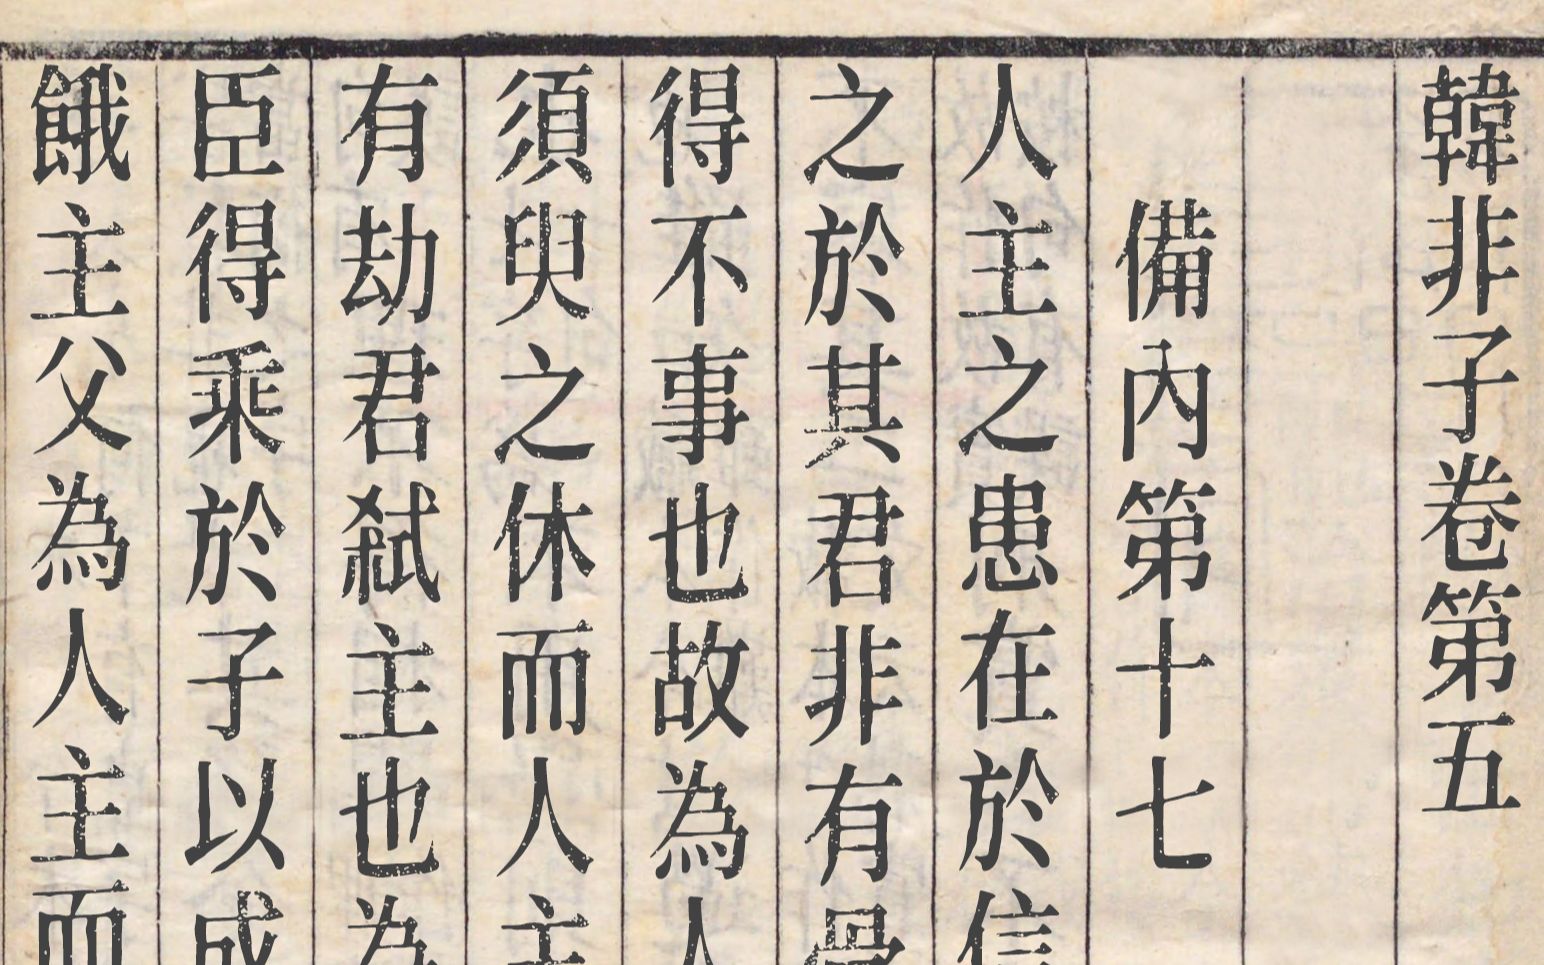 韓非子卷第五
備內第十七
人主之患在於信
之於其君非有骨
得不事也故為人
須臾之休而人主
有劫君弒主也為
臣得乘於子以成
餓主父為人主而